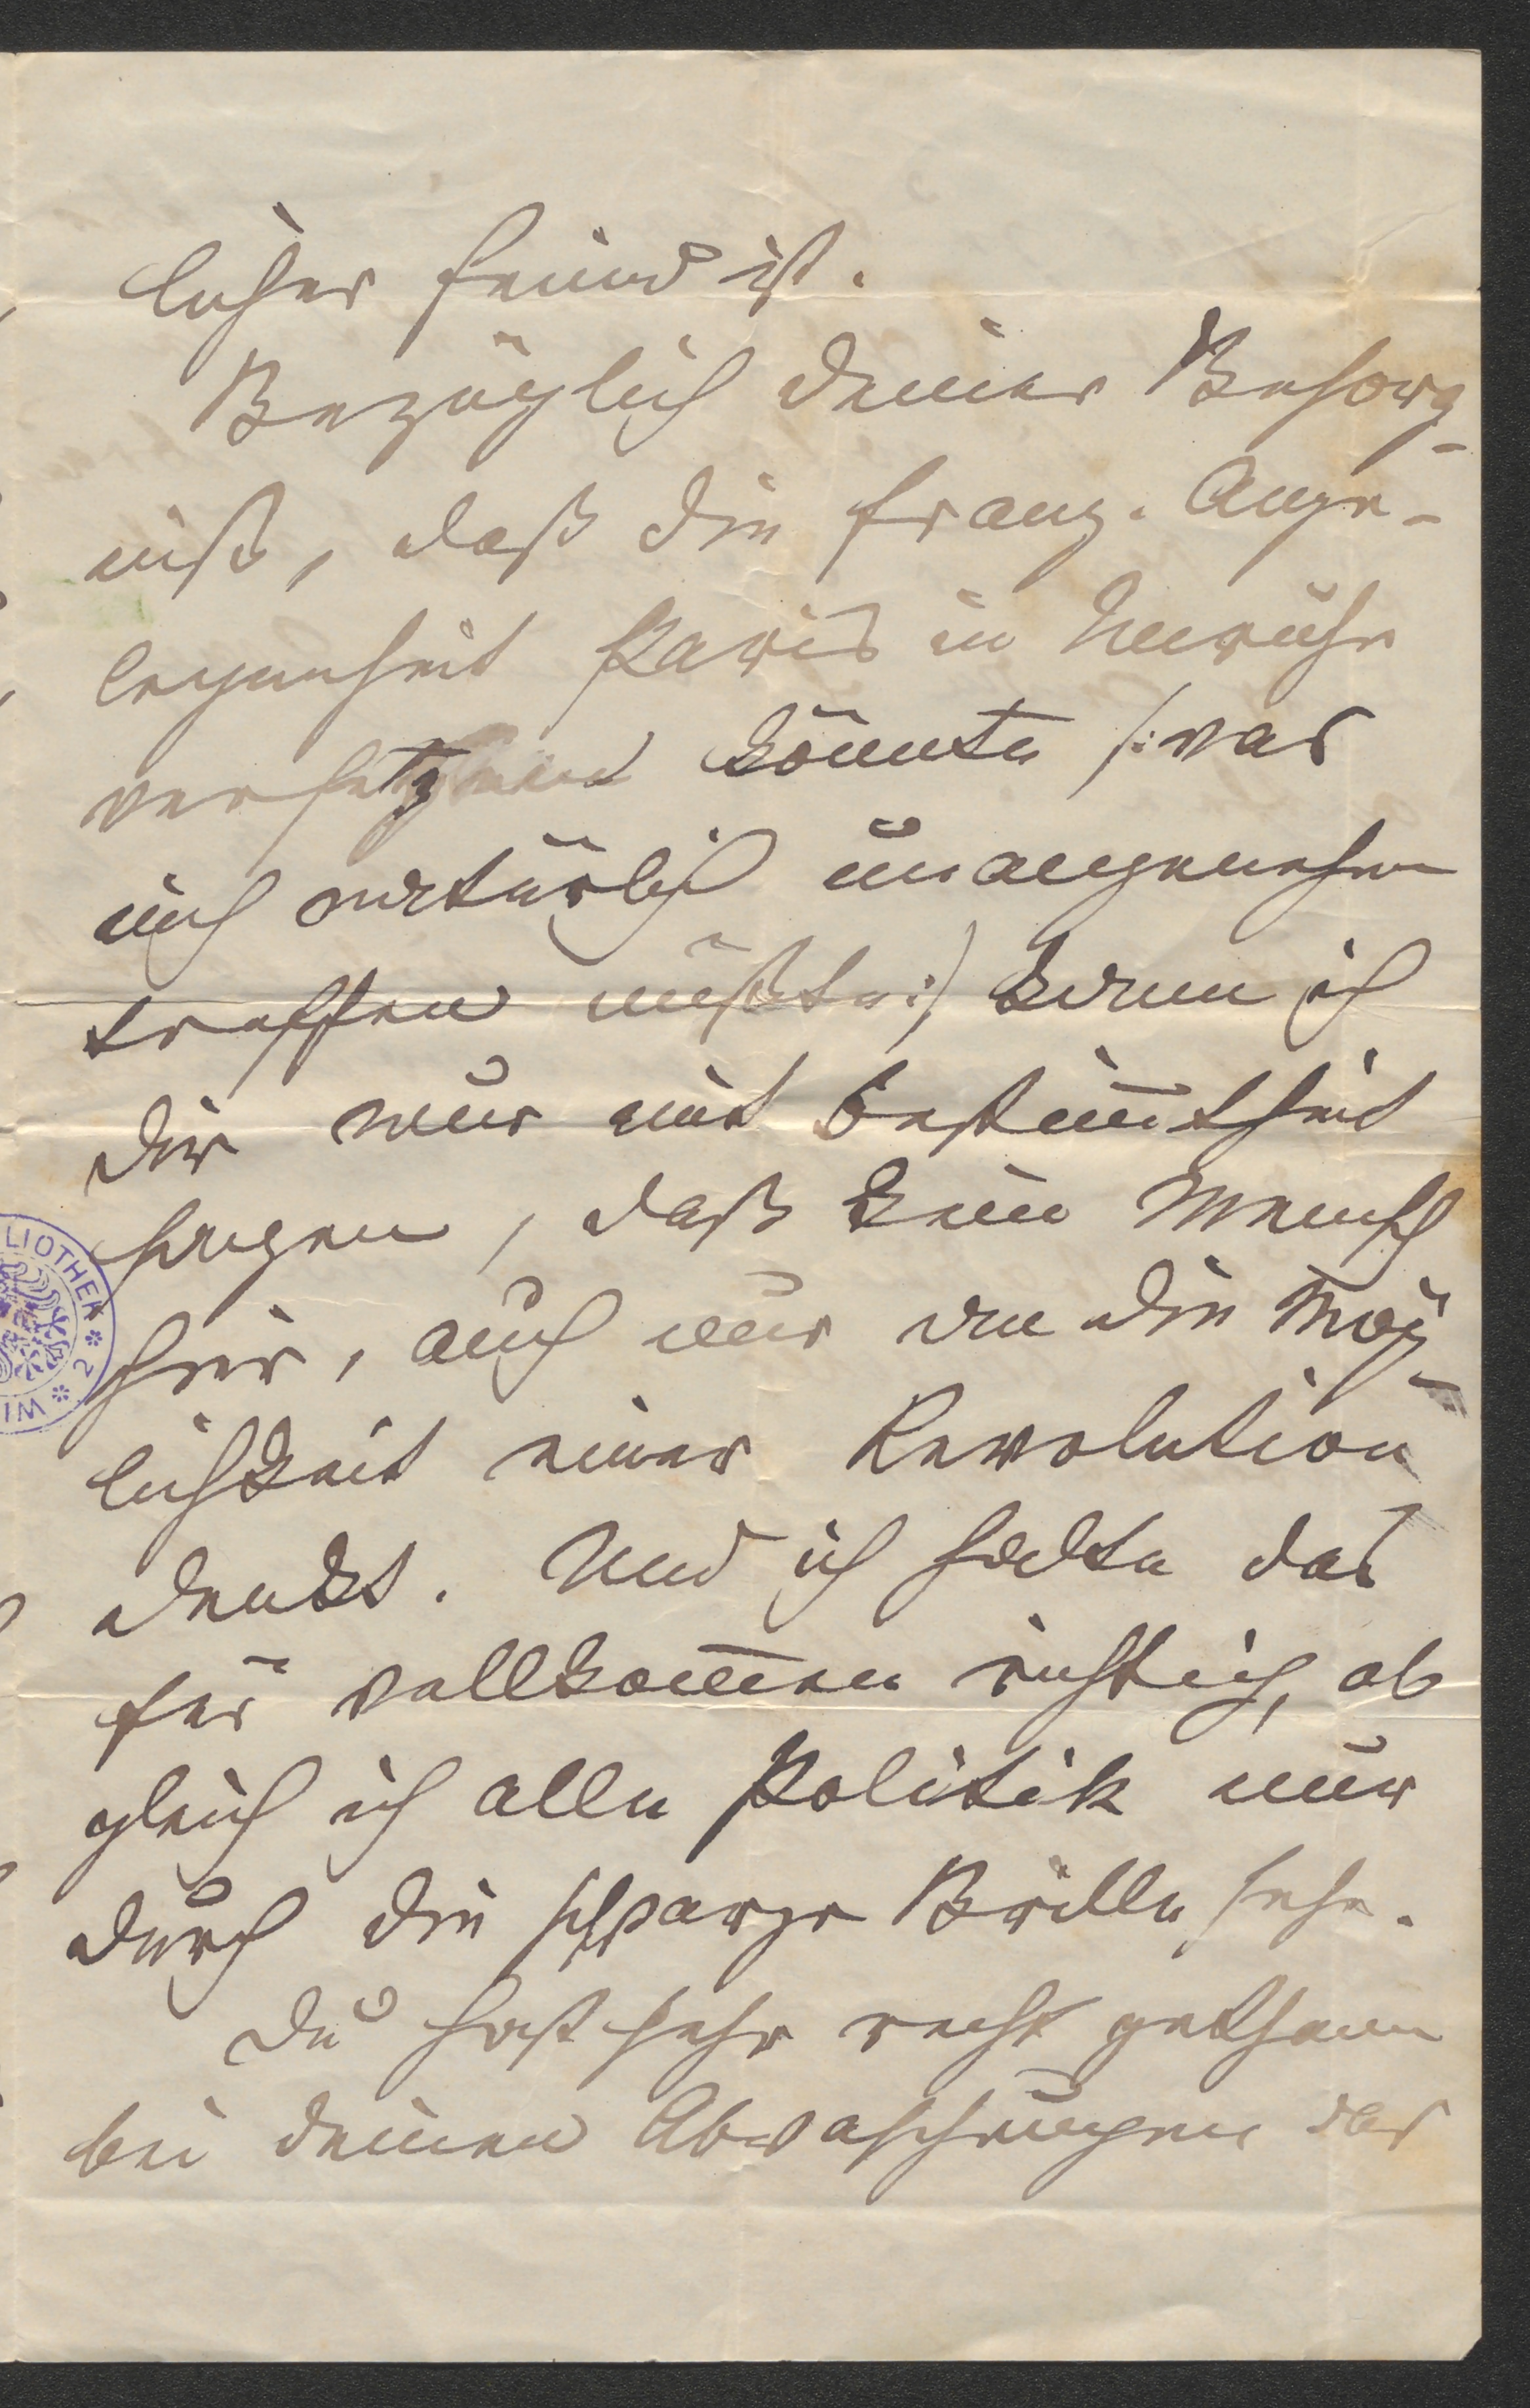 licher Feind ist.
Bezüglich deiner Besorg-
niß, daß die franz. Ange-
legenheit Paris in Unruhe
versetzen könnte /: was
mich natürlich unangenehm
treffen müßte :/ kann ich
dir nur mit Bestim̅theit
sagen, daß kein Mensch
hier, auch nur an die Mög-
lichkeit einer Revolution
denkt. Und ich halte das
für vollkom̅en richtig, ob
gleich ich alle Politik nur
durch die schwarze Brille sehe.
Du hast sehr recht gethan
bei deinen Abwaschungen das
LIOTHEK * 2 * WI